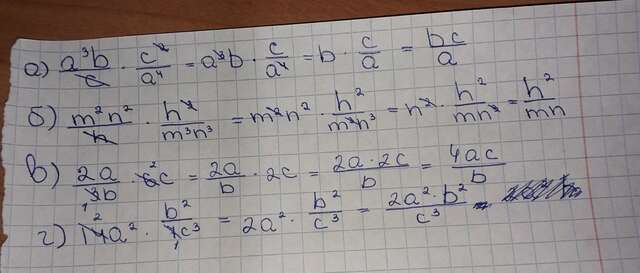 а) a³b/c · c²/a⁴ = a³b · c/a⁴ = b · c/a = bc/a
б) m²n²/h · h³/m³n³ = m²n² · h²/m³n³ = n² · h²/mn³ = h²/mn
в) 2a/3b · 6c = 2a/b · 2c = 2a·2c/b = 4ac/b
г) 14a² · b²/7c³ = 2a² · b²/c³ = 2a²·b²/c³